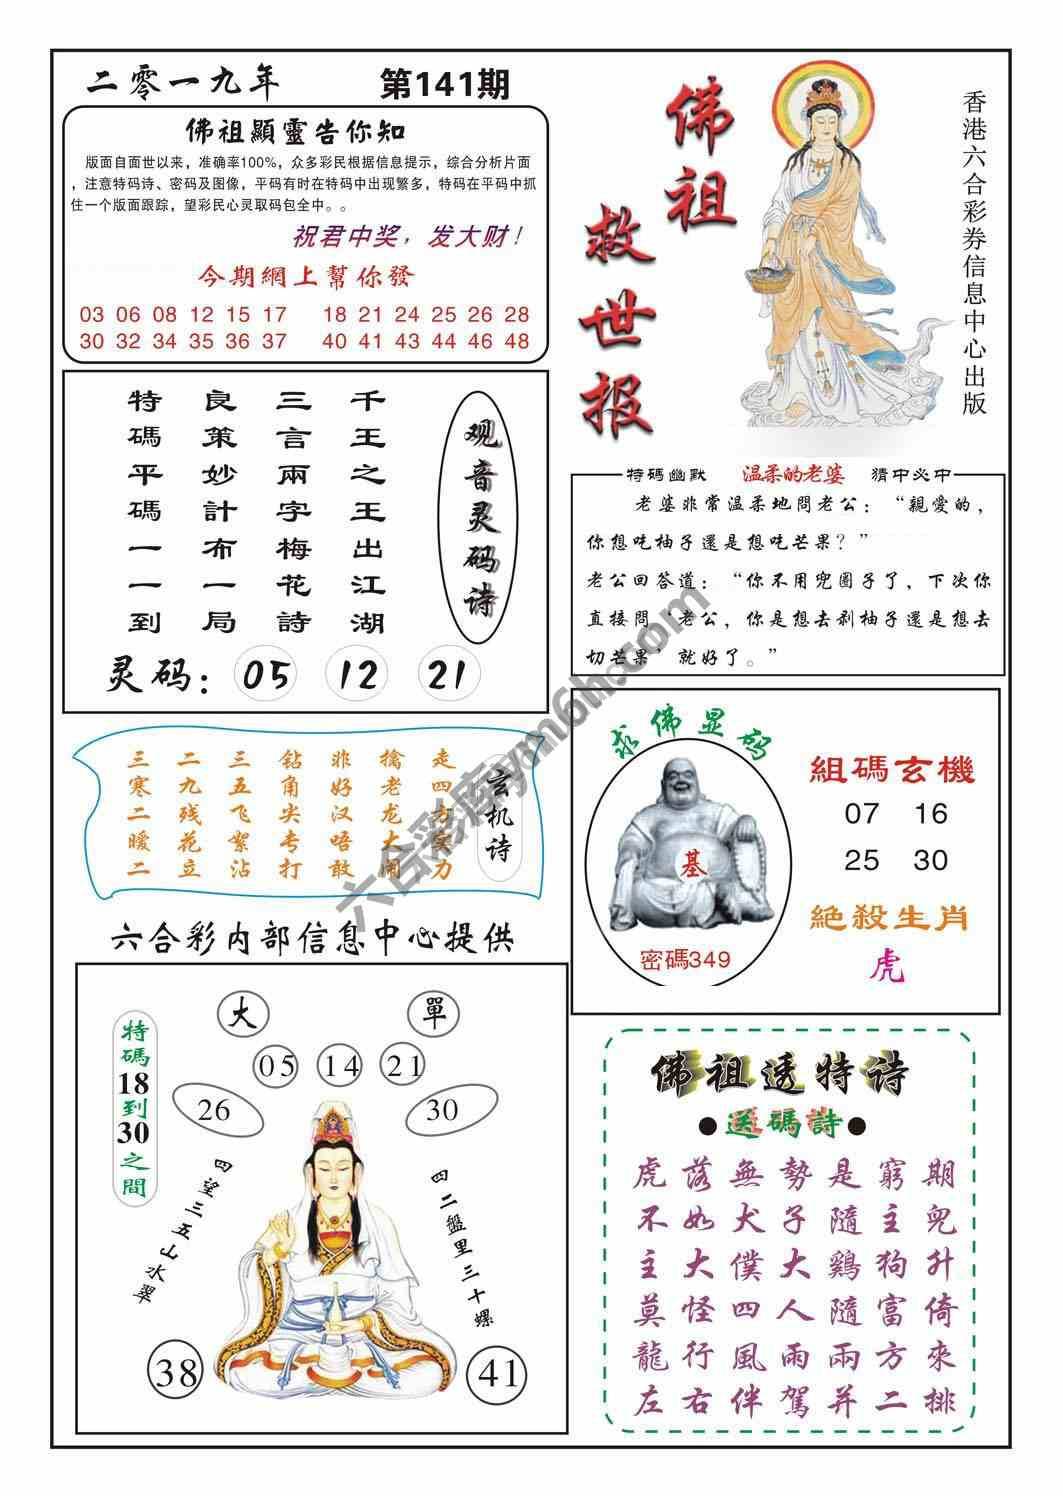 二零一九年
第141期
佛祖顯靈告你知
版面自面世以来，准确率100%，众多彩民根据信息提示，综合分析片面
，注意特码诗、密码及图像，平码有时在特码中出现繁多，特码在平码中抓
住一个版面跟踪，望彩民心灵取码包全中。。
祝君中奖，发大财！
今期網上幫你發
03 06 08 12 15 17 18 21 24 25 26 28
30 32 34 35 36 37 40 41 44 46 48
佛祖
救世报
香港六合彩券信息中心出版
观音灵码诗
千王之王出江湖
三言兩字梅花詩
良策妙計布一局
特碼平碼一一到
灵码：05 12 21
特碼幽默 温柔的老婆 猜中必中
老婆非常温柔地問老公：“親愛的，
你想吃柚子還是想吃芒果？”
老公回答道：“你不用兜圈子了，下次你
直接問‘老公，你是想去剥柚子還是想去
切芒果’就好了。”
玄机诗
走四方卖力
擒老龙大闹
非好汉唔敢
钻角尖专打
三五飞絮沾
二九残花立
三寒二暖二
求佛显码
基
密碼349
組碼玄機
07 16
25 30
絶殺生肖
虎
六合彩内部信息中心提供
大 單
05 14 21
26 30
特碼18到30之間
四望三五山水翠
四二盤里三十螺
38 41
佛祖透特诗
●送碼詩●
虎落無勢是窮期
不如犬子隨主兜
主大僕大鷄狗升
莫怪四人隨富倚
龍行風雨兩方來
左右伴駕并二排
六合彩库ym6h.com